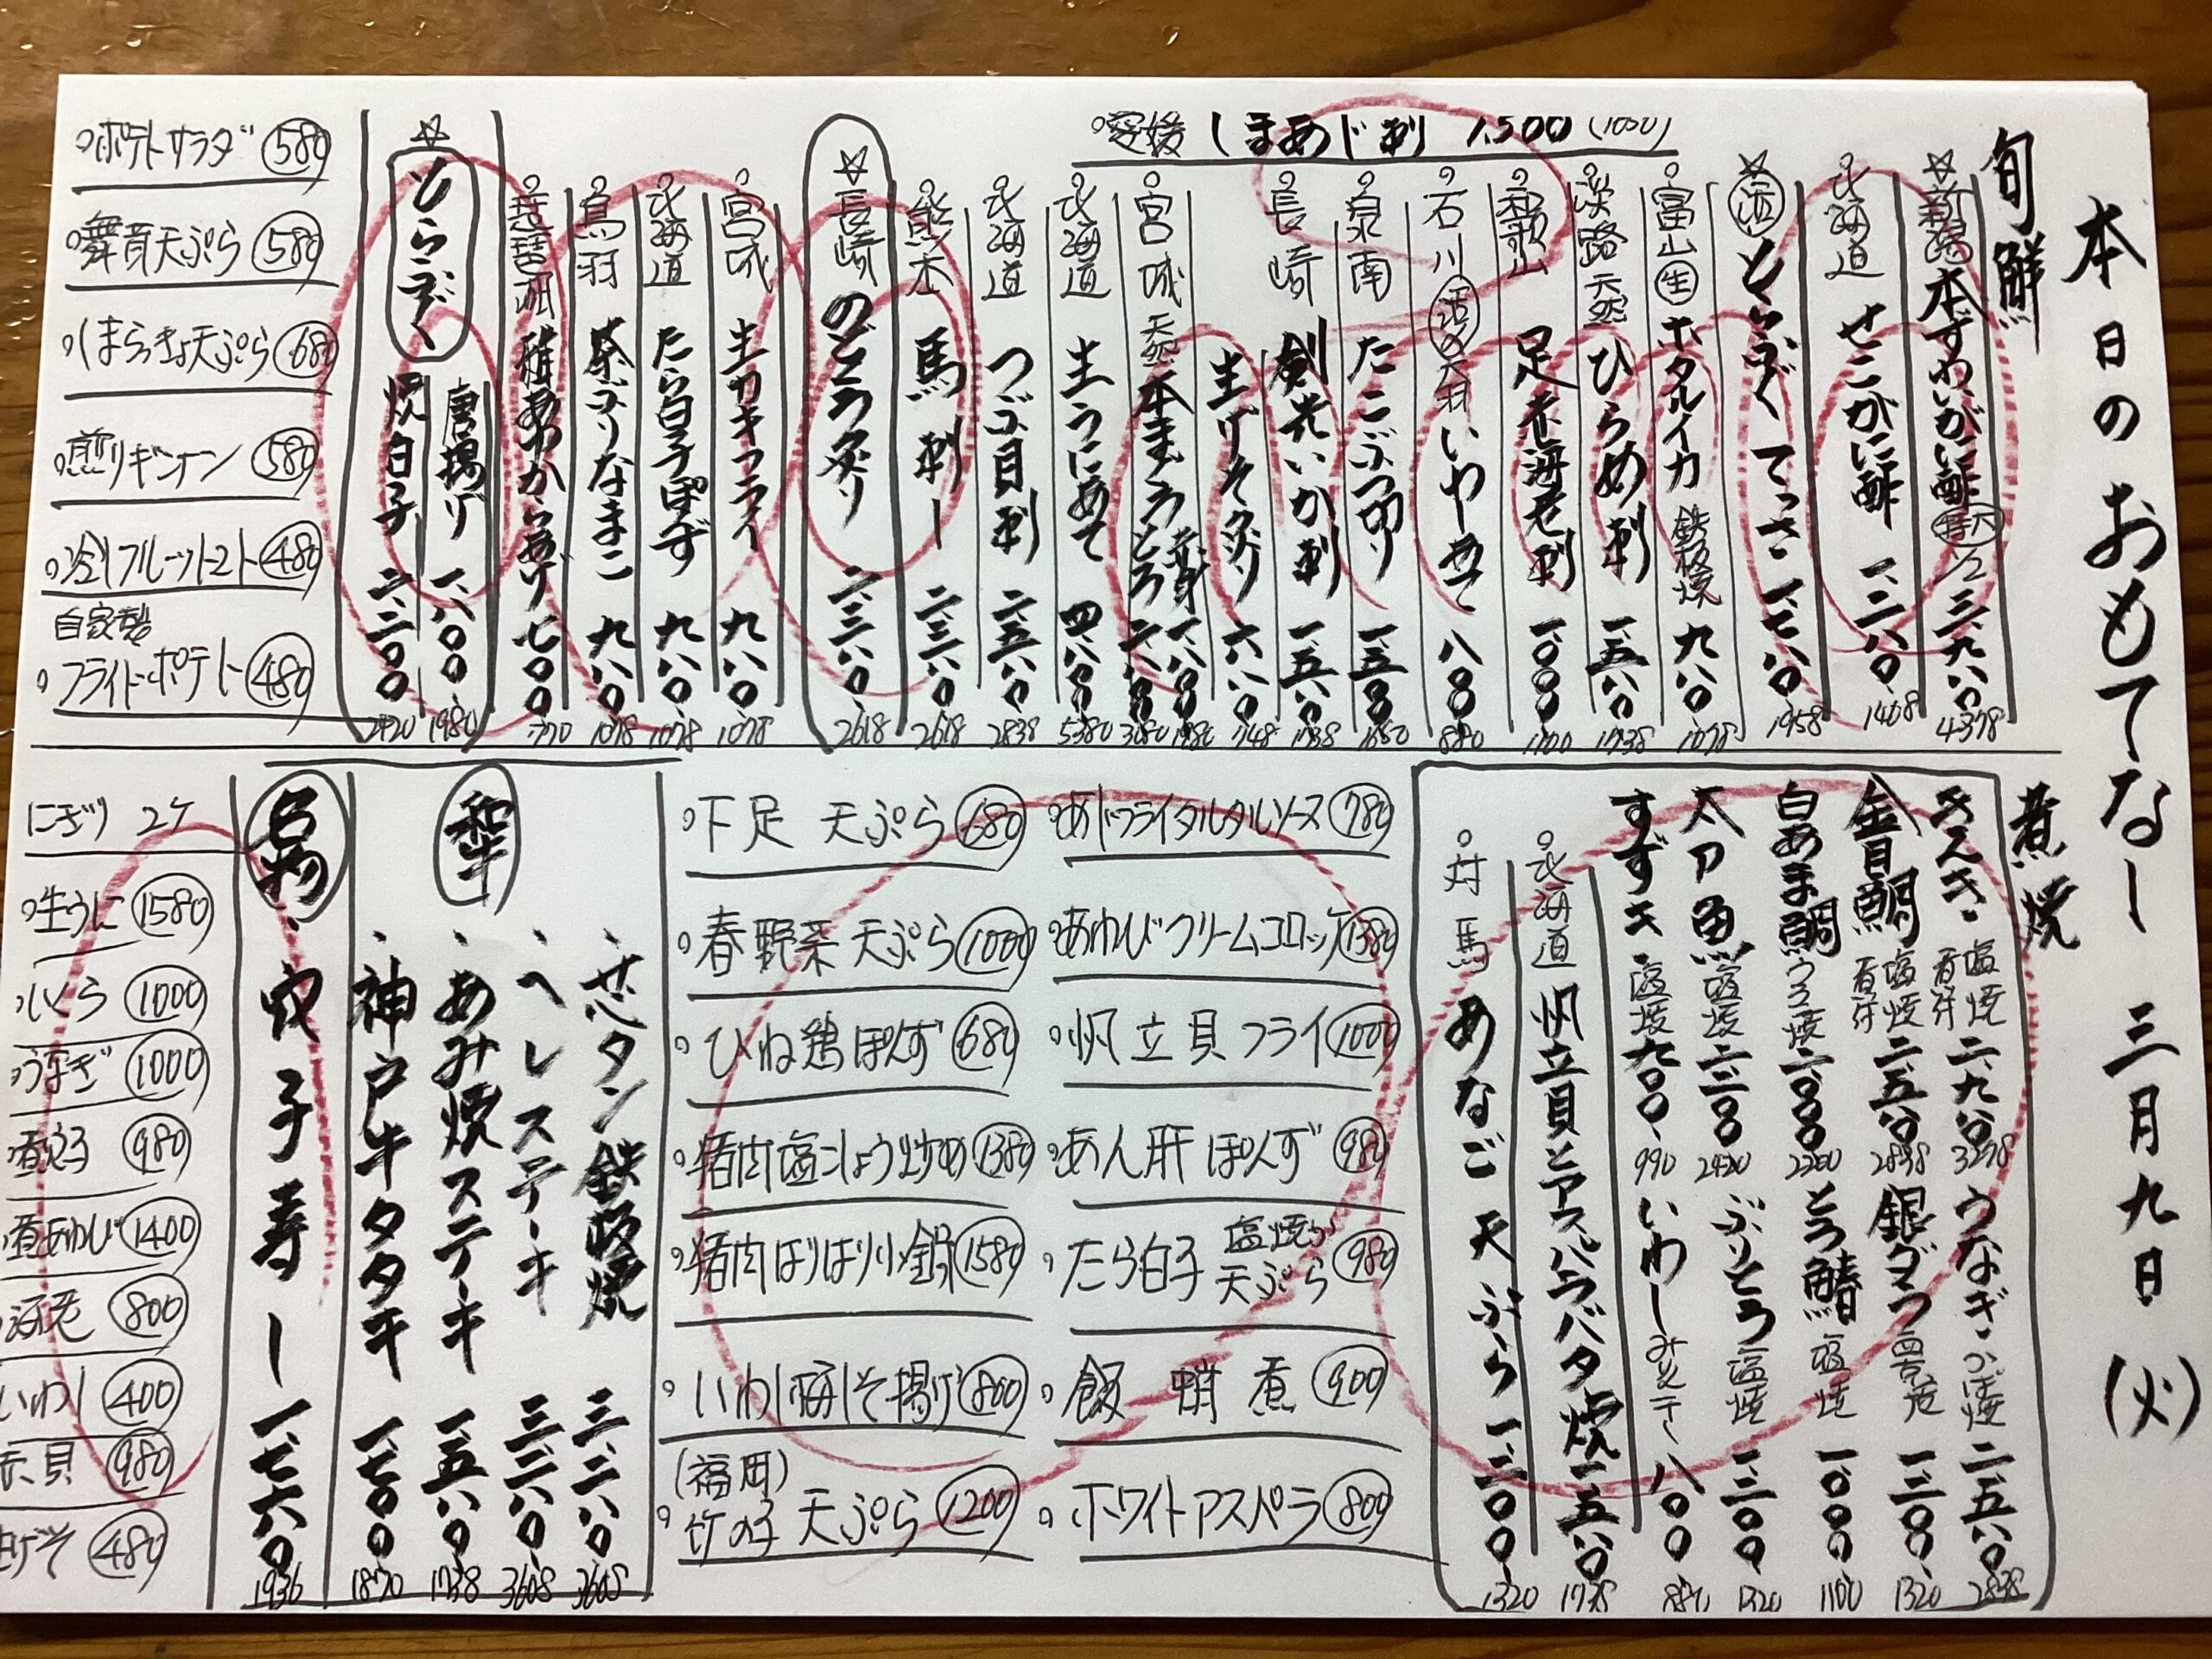 本日のおもてなし 三月九日(火)
旬鮮
愛媛 しまあじ刺 1,500
☆新潟 本ずわいがに酢 1/2 三、九八〇 4378
北海道 せこがに酢 一、二八〇 1408
☆活 とらふぐ てっさ 一、七八〇 1958
富山 生 ホタルイカ 鉄板焼 九八〇 1078
淡路 天然 ひらめ刺 一、五八〇 1738
和歌山 足赤海老刺 一、〇〇〇 1100
石川 いわし 八〇〇 880
泉南 たこぶつ切り 一、五〇〇 1650
長崎 剣先いか刺 一、五八〇 1738
生げそ炙り 六八〇 748
宮城 天然 本まぐろ 赤身 一、八〇〇 1980
とろ 二、八〇〇 3080
北海道 生うにあて
北海道 つぶ貝刺 二、五八〇 2838
熊本 馬刺し 二、三八〇 2618
☆長崎 のどぐろ炙り 二、三八〇 2618
宮城 生カキフライ 九八〇 1078
北海道 たら白子ぽんず 九八〇 1078
鳥羽 茶ぶりなまこ 九八〇 1078
琵琶湖 稚あゆから揚げ 七〇〇 770
☆とらふぐ
唐揚げ 一、八〇〇 1980
焼白子 二、二〇〇 2420
ポテトサラダ 580
舞茸天ぷら 580
しまらっきょ天ぷら 680
煎りギンナン 580
冷しフルーツトマト 480
自家製
フライドポテト 480
煮焼
きんき 塩焼 煮付 二、九八〇 3278
金目鯛 塩焼 煮付 二、五八〇 2838
白あま鯛 うろこ焼 二、〇〇〇 2200
太刀魚 塩焼 二、二〇〇 2420
すずき 塩焼 九〇〇 990
うなぎ かば焼 二、五八〇 2838
銀ダラ 西京焼 一、二〇〇 1320
とろ鯖 塩焼 一、〇〇〇 1100
ぶりとろ 塩焼 一、二〇〇 1320
いわし 八〇〇
北海道 帆立貝とアスパラバター焼 一、五八〇 1738
対馬 あなご天ぷら 一、二〇〇 1320
あじフライタルタルソース 780
あわびクリームコロッケ 1380
帆立貝フライ 1000
あん肝ぽんず 980
たら白子 塩焼か天ぷら 980
飯蛸煮 900
ホワイトアスパラ 800
下足 天ぷら 680
春野菜天ぷら 1000
ひね鶏ぽんず 680
猪肉塩こしょう炒め 1380
猪肉はりはり小鍋 1580
いわし梅しそ揚げ 800
(福岡)
竹の子天ぷら 1200
和牛
芯タン鉄板焼 三、二八〇 3608
ヘレステーキ 三、二八〇 3608
あみ焼ステーキ 一、五八〇 1738
神戸牛タタキ 一、七〇〇 1870
名物 穴子寿し 一、七六〇 1936
にぎり 2ケ
生うに 1580
いくら 1000
うなぎ 1000
煮穴子 980
煮あわび 1400
海老 800
いわし 400
赤貝 980
生げそ 480